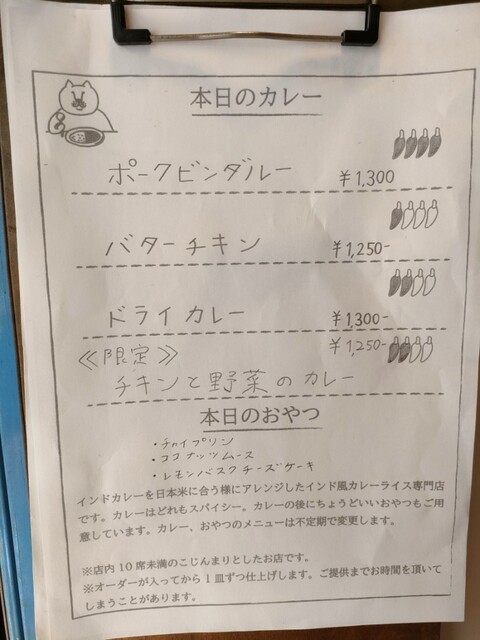 本日のカレー
ポークビンダルー ¥1,300
バターチキン ¥1,250-
ドライカレー ¥1,300-
≪限定≫ ¥1,250-
チキンと野菜のカレー
本日のおやつ
・チャイプリン
・ココナッツムース
・レモンバスクチーズケーキ
インドカレーを日本米に合う様にアレンジしたインド風カレーライス専門店
です。カレーはどれもスパイシー。カレーの後にちょうどいいおやつもご用
意しています。カレー、おやつのメニューは不定期で変更します。
※店内 10 席未満のこじんまりとしたお店です。
※オーダーが入ってから 1 皿ずつ仕上げします。ご提供までお時間を頂いて
しまうことがあります。